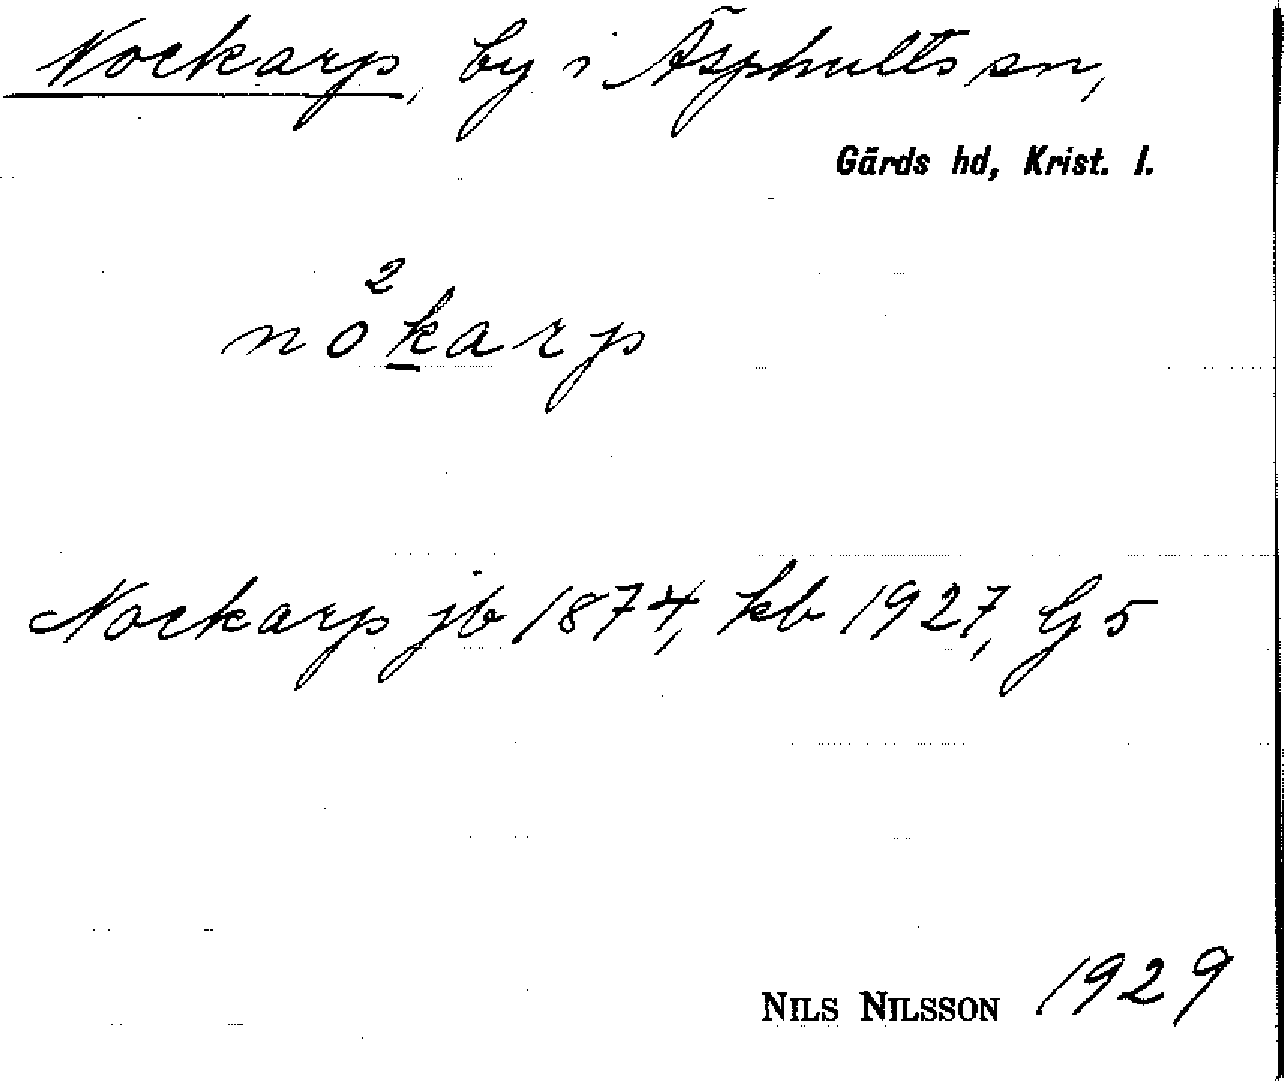 Nockarp, by i Äsphults sn,
Gärds hd, Krist. l.
2
nokarp
Nockarp jb 1874, kb 1927, G 5
NILS NILSSON 1929